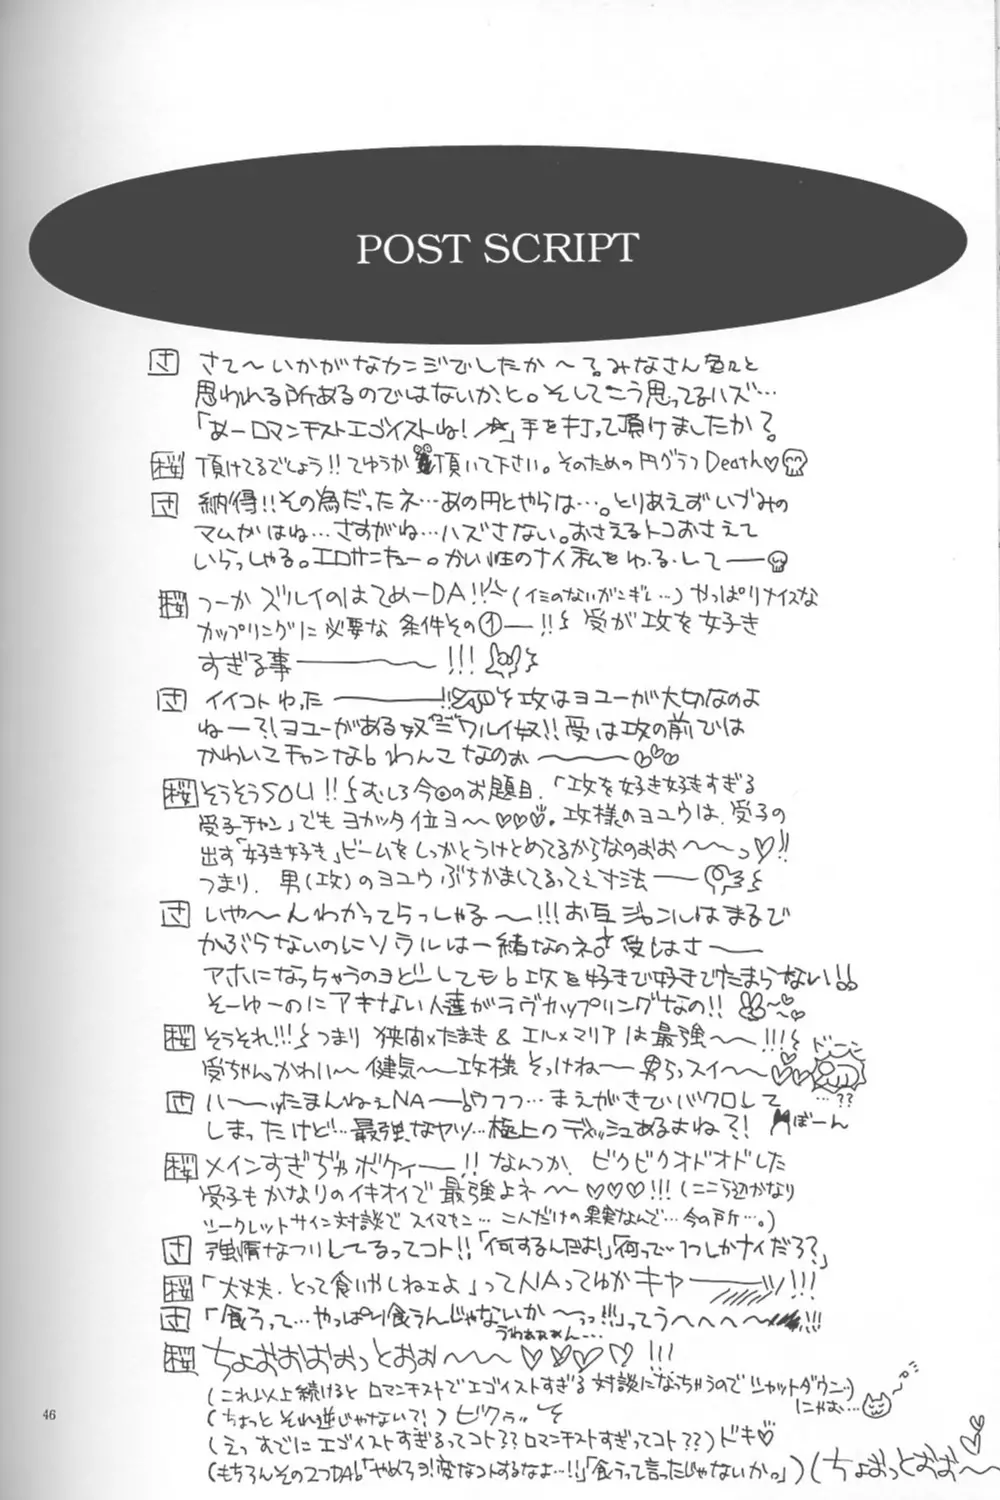 POST SCRIPT
さ さて〜いかがなカンジでしたか〜?みなさん色々と
思われる所あるのではないかと。そしてこう思ってるハズ…
「あーロマンチストエゴイストね!☆」手を打って頂けましたか?
桜 頂けてるでしょう!!てゆうか頂いて下さい。そのための円グラフDeath♡
さ 納得!!その為だったネ…あの円とやらは…。とりあえずいづみの
マムがはね…さすがね…ハズさない。おさえるトコおさえて
いらっしゃる。エロサンキュー。かい性のナイ私をゆ・る・して――
桜 つーかズルイのはてめーDA!!(イミのないがいこギレ…)やっぱりナイスな
カップリングに必要な条件その①―!!受が攻を好き
すぎる事――〜〜―!!!
さ イイコトゆった――――!!そ攻はヨユーが大切なのよ
ねー?!ヨユーがある奴=ワルイ奴!!受は攻の前では
かわいこチャンなわんこなのぉ――〜〜
桜 そうそうSOU!!むしろ今回のお題目、「攻を好き好きすぎる
受子チャン」でもヨカッタ位ヨ〜♡♡♡。攻様のヨユウは、受子の
出す「好き好き」ビームをしっかとうけとめてるからなのおお〜〜っ♡!!
つまり、男(攻)のヨユウぶちかましてるってえ寸法――
さ いや〜んわかってらっしゃる〜!!!お互ジャンルはまるで
かぶらないのにソウルは一緒なのネ 受しはさ――
アホになっちゃうのヨどーしても 攻を好きで好きでたまらない!!
そーゆーのにアキない人達がラヴカップリングなの!!
桜 そうそれ!!!つまり 狭間×たまき & エル×マリアは最強〜〜!!!ドーン
受ちゃんかわい〜 健気〜 攻様 そっけね〜男らっスイ〜♡♡
さ ハーッたまんねぇNA―ウフフ…まえがきでバクロして …??
しまったけど…最強なヤツ…極上のデッシュあるよね?! ぼーん
桜 メインすぎぢゃボケィ―!!なんつか、ビクビクオドオドした
受子もかなりのイキオイで最強よネ〜〜♡♡♡!!!(ここら辺かなり
シークレットサイン対談でスイマセン…二人だけの果実なんで…今の所…。)
さ 強情なフリしてるってコト!!「何するんだよ!」「何ってい1つしかナイだろ?」
桜 「大丈夫、とって食いやしねェよ」ってNAってゆかキャ――ッ!!!
さ 「食うって…やっぱり食うんじゃないか〜っっ!!!」ってうへへへへ〜!!!
うわぁ…
桜 ちょおおおおっとおぉ〜〜〜♡♡♡♡!!!
(これ以上続けるとロマンチストでエゴイストすぎる対談になっちゃうのでシャットダウン…)
にゃお…
(ちょっとそれ逆じゃない?!)ビクぅッ
(えっすでにエゴイストすぎるってコト??ロマンチストすぎってコト??)ドキ♡
(もちろんその2つDA!「やめろヨ!変なコトするなよ…!!」「食うって言ったじゃないか。」)(ちょおっとおお〜
46